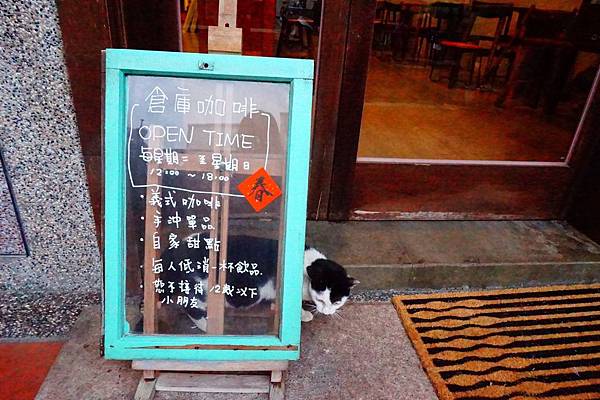 倉庫咖啡
OPEN TIME
每星期二至星期日
12:00 ~ 18:00
春
・義式咖啡
・手沖單品
・自家甜點
・每人低消一杯飲品.
・恕不接待12歲以下
小朋友